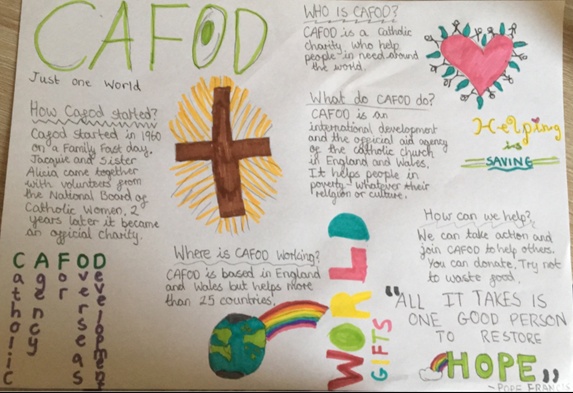 CAFOD
Just one World
How Cafod started?
Cafod started in 1960
on a Family Fast day.
Jacquie and Sister
Alicia came together
with volunteers from
the National Board of
Catholic Women, 2
years later it became
an official Charity.
CAFOD
Catholic
Agency
for
Overseas
Development
Where is CAFOD working?
CAFOD is based in England
and Wales but helps more
than 25 countries.
WHO IS CAFOD?
CAFOD is a Catholic
charity who help
people in need around
the world.
What do CAFOD do?
CAFOD is an
international development
and the official aid agency
of the catholic church
in England and Wales.
It helps people in
poverty whatever their
religion or culture.
Helping
is
SAVING
How can we help?
We can take action and
join CAFOD to help others.
You can donate, Try not
to waste food.
WORLD
GIFTS
"ALL IT TAKES IS
ONE GOOD PERSON
TO RESTORE
HOPE"
- POPE FRANCIS